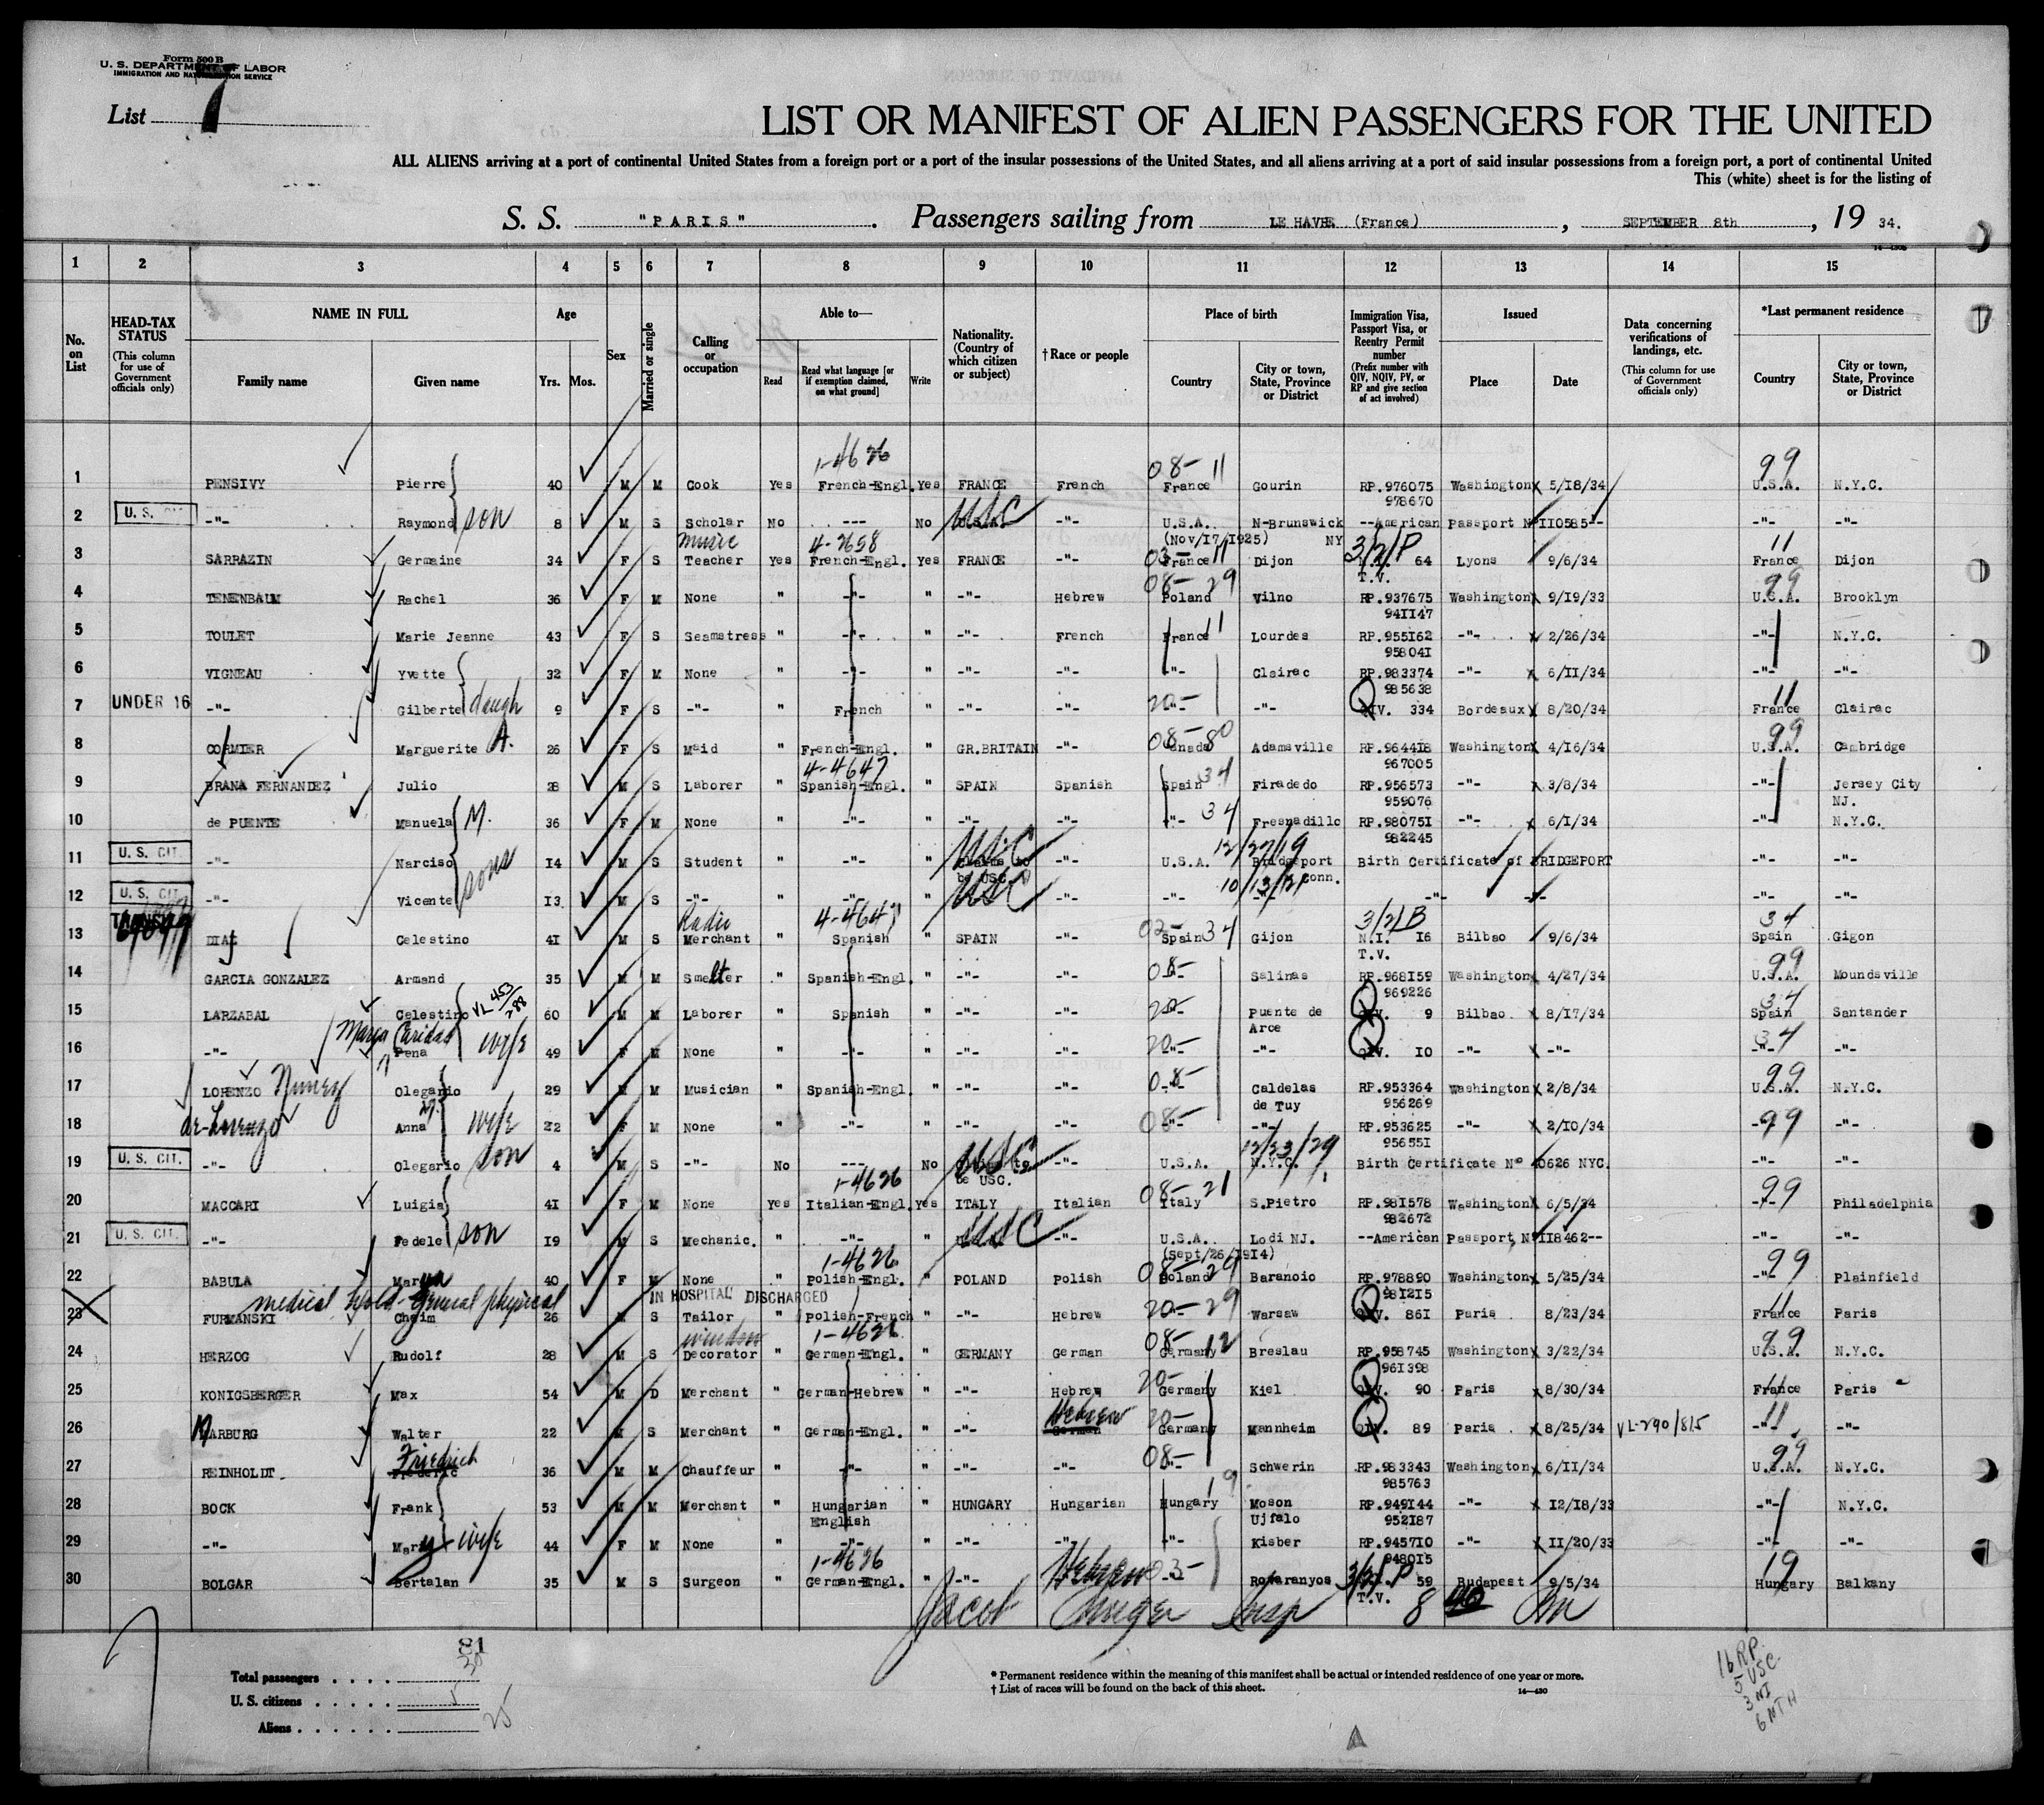 Form 500 B
U. S. DEPARTMENT OF LABOR
IMMIGRATION AND NATURALIZATION SERVICE
List 7
LIST OR MANIFEST OF ALIEN PASSENGERS FOR THE UNITED
ALL ALIENS arriving at a port of continental United States from a foreign port or a port of the insular possessions of the United States, and all aliens arriving at a port of said insular possessions from a foreign port, a port of continental United
This (white) sheet is for the listing of
S. S. "PARIS". Passengers sailing from LE HAVRE (France), SEPTEMBER 8th, 19 34.
1 2 3 4 5 6 7 8 9 10 11 12 13 14 15
No. on List
HEAD-TAX STATUS (This column for use of Government officials only)
NAME IN FULL Family name Given name
Age Yrs. Mos.
Sex
Married or single
Calling or occupation
Able to— Read Read what language [or if exemption claimed, on what ground] Write
Nationality. (Country of which citizen or subject)
† Race or people
Place of birth Country City or town, State, Province or District
Immigration Visa, Passport Visa, or Reentry Permit number (Prefix number with QIV, NQIV, PV, or RP and give section of act involved)
Issued Place Date
Data concerning verifications of landings, etc. (This column for use of Government officials only)
*Last permanent residence Country City or town, State, Province or District
1-4626 08-11 99
1 PENSIVY Pierre 40 M M Cook Yes French-Engl. Yes FRANCE French France Gourin RP.976075 Washington 5/18/34 U.S.A. N.Y.C.
978670
2 U. S. CIT. -"- Raymond son 8 M S Scholar No --- No U.S.A. USC -"- U.S.A. N-Brunswick --American Passport Nº110585-- -"- -"-
music 4-2658 (Nov/17/1925) NY 03-11 3/2/P 11
3 SARRAZIN Germaine 34 F S Teacher Yes French-Engl. Yes FRANCE -"- France Dijon 64 Lyons 9/6/34 France Dijon
T.V. 08-29 99
4 TENENBAUM Rachel 36 F M None " -"- " -"- Hebrew Poland Vilno RP.937675 Washington 9/19/33 U.S.A. Brooklyn
941147
5 TOULET Marie Jeanne 43 F S Seamstress " -"- " -"- French France 11 Lourdes RP.955162 -"- 2/26/34 -"- N.Y.C.
958041
6 VIGNEAU Yvette 32 F M None " -"- " -"- -"- -"- Clairac RP.983374 -"- 6/11/34 -"- -"-
985638 20- 11
7 UNDER 16 -"- Gilberte daugh 9 F S -"- " French " -"- -"- -"- -"- QIV. 334 Bordeaux 8/20/34 France Clairac
08-80 99
8 CORMIER Marguerite A. 26 F S Maid " French-Engl. " GR.BRITAIN -"- Canada Adamsville RP.964418 Washington 4/16/34 U.S.A. Cambridge
4-4647 967005
9 BRANA FERNANDEZ Julio 28 M S Laborer " Spanish-Engl. " SPAIN Spanish Spain 34 Firadedo RP.956573 -"- 3/8/34 -"- Jersey City
959076 NJ.
10 de PUENTE Manuela M. 36 F M None " -"- " -"- -"- -"- 34 Fresnadillo RP.980751 -"- 6/1/34 -"- N.Y.C.
982245
11 U. S. CIT. -"- Narciso sons 14 M S Student " -"- " Claims to USC -"- U.S.A. 12/27/19 Bridgeport Birth Certificate of BRIDGEPORT -"- -"-
be USC. Conn.
12 U. S. CIT. -"- Vicente 13 M S -"- " -"- " USC -"- -"- 10/13/21 -"- -"- -"- -"- -"-
Radio 4-4647 02- 34 3/2/B 34
13 DIAZ Celestino 41 M S Merchant " Spanish " SPAIN -"- Spain Gijon N.I. 16 Bilbao 9/6/34 Spain Gigon
T.V. 08- 99
14 GARCIA GONZALEZ Armand 35 M M Smelter " Spanish-Engl. " -"- -"- -"- Salinas RP.968159 Washington 4/27/34 U.S.A. Moundsville
VL 453/288 969226 34
15 LARZABAL Celestino 60 M M Laborer " Spanish " -"- -"- 20- Puente de QIV. 9 Bilbao 8/17/34 Spain Santander
Maria Caridad Arce
16 -"- Pena wife 49 F M None " -"- " -"- -"- 20- -"- QIV. 10 -"- -"- 34 -"- -"-
17 LORENZO Nunez Olegario 29 M M Musician " Spanish-Engl. " -"- -"- 08- Caldelas RP.953364 Washington 2/8/34 U.S.A. 99 N.Y.C.
de Tuy 956269
18 de-Lorenzo Anna M. wife 22 F M None " -"- " -"- -"- 08- -"- RP.953625 -"- 2/10/34 99 -"-
956551
19 U. S. CIT. -"- Olegario son 4 M S -"- No --- No Claims to USC -"- U.S.A. 12/23/29 N.Y.C. Birth Certificate Nº 40626 NYC. -"- -"-
1-4626 be USC. 08-21 99
20 MACCARI Luigia 41 F M None Yes Italian-Engl. Yes ITALY Italian Italy S.Pietro RP.981578 Washington 6/5/34 -"- Philadelphia
982672
21 U. S. CIT. -"- Fedele son 19 M S Mechanic. " -"- " USC -"- U.S.A. Lodi NJ. --American Passport Nº118462-- -"- -"-
1-4626 (Sept/26/1914) 08-29 99
22 BABULA Marya 40 F M None " Polish-Engl. " POLAND Polish Poland Baranoio RP.978890 Washington 5/25/34 -"- Plainfield
medical hold - General physical IN HOSPITAL DISCHARGED 981215
23 FURMANSKI Chaim 26 M S Tailor " Polish-French " -"- Hebrew 20-29 Warsaw QIV. 861 Paris 8/23/34 France 11 Paris
window 1-4626 08-12 99
24 HERZOG Rudolf 28 M S Decorator " German-Engl. " GERMANY German Germany Breslau RP.958745 Washington 3/22/34 U.S.A. N.Y.C.
961398
25 KONIGSBERGER Max 54 M D Merchant " German-Hebrew " -"- Hebrew 20- Germany Kiel QIV. 90 Paris 8/30/34 France 11 Paris
Hebrew 20-
26 MARBURG Walter 22 M S Merchant " German-Engl. " -"- German Germany Mannheim QIV. 89 Paris 8/25/34 VL-290/815 -"- 11 -"-
Friedrich 08- 99
27 REINHOLDT Frederic 36 M M Chauffeur " -"- " -"- -"- -"- Schwerin RP.983343 Washington 6/11/34 U.S.A. N.Y.C.
985763
28 BOCK Frank 53 M M Merchant " Hungarian " HUNGARY Hungarian Hungary 19 Moson RP.949144 -"- 12/18/33 -"- N.Y.C.
English Ujfalo 952187
29 -"- Mary wife 44 F M None " -"- " -"- -"- -"- Kisber RP.945710 -"- 11/20/33 -"- -"-
1-4626 948015
30 BOLGAR Bertalan 35 M S Surgeon " German-Engl. " -"- Hebrew 03- -"- Rofaranyos 3/2/P 59 Budapest 9/5/34 Hungary 19 Balkany
T.V.
Jacob Insp 8 40
Total passengers 81 30
U. S. citizens 5
Aliens 25
* Permanent residence within the meaning of this manifest shall be actual or intended residence of one year or more.
† List of races will be found on the back of this sheet.
14—430
16 RP.
5 USC.
3 NI
6 NTA